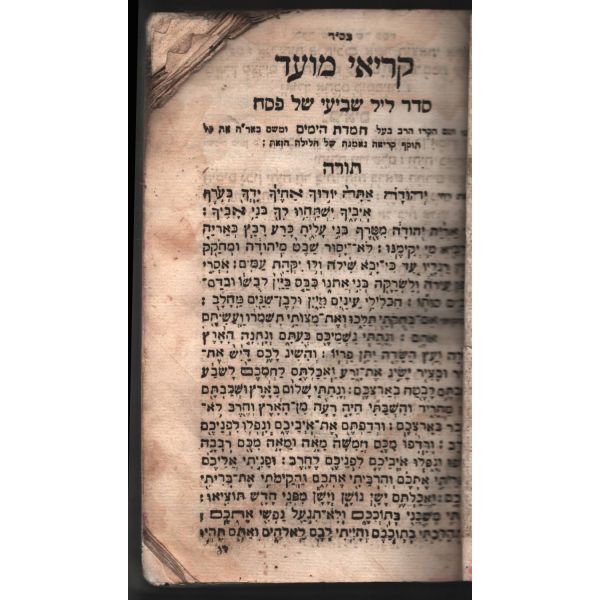 בס״ד
קריאי מועד
סדר ליל שביעי של פסח
הרב בעל חמדת הימים ומשם בארה את כל
תוקף קריאה נאמנה של הלילה הזאת :
תורה
יְהוּדָה אַתָּה יוֹדוּךָ אַחֶיךָ יָדְךָ בְּעֹרֶף
אֹיְבֶיךָ יִשְׁתַּחֲווּ לְךָ בְּנֵי אָבִיךָ :
אַרְיֵה יְהוּדָה מִטֶּרֶף בְּנִי עָלִיתָ כָּרַע רָבַץ כְּאַרְיֵה
מִי יְקִימֶנּוּ : לֹא־יָסוּר שֵׁבֶט מִיהוּדָה וּמְחֹקֵק
רַגְלָיו עַד כִּי־יָבֹא שִׁילֹה וְלוֹ יִקְּהַת עַמִּים : אֹסְרִי
עִירֹה וְלַשֹּׂרֵקָה בְּנִי אֲתֹנוֹ כִּבֵּס בַּיַּיִן לְבֻשׁוֹ וּבְדַם־
סוּתוֹ : חַכְלִילִי עֵינַיִם מִיָּיִן וּלְבֶן־שִׁנַּיִם מֵחָלָב :
אִם־בְּחֻקֹּתַי תֵּלֵכוּ וְאֶת־מִצְוֹתַי תִּשְׁמְרוּ וַעֲשִׂיתֶם
אֹתָם : וְנָתַתִּי גִשְׁמֵיכֶם בְּעִתָּם וְנָתְנָה הָאָרֶץ
וְעֵץ הַשָּׂדֶה יִתֵּן פִּרְיוֹ : וְהִשִּׂיג לָכֶם דַּיִשׁ אֶת־
וּבָצִיר יַשִּׂיג אֶת־זָרַע וַאֲכַלְתֶּם לַחְמְכֶם לָשֹׂבַע
לָבֶטַח בְּאַרְצְכֶם : וְנָתַתִּי שָׁלוֹם בָּאָרֶץ וּשְׁכַבְתֶּם
מַחֲרִיד וְהִשְׁבַּתִּי חַיָּה רָעָה מִן־הָאָרֶץ וְחֶרֶב לֹא־
בְּאַרְצְכֶם : וּרְדַפְתֶּם אֶת־אֹיְבֵיכֶם וְנָפְלוּ לִפְנֵיכֶם
וְרָדְפוּ מִכֶּם חֲמִשָּׁה מֵאָה וּמֵאָה מִכֶּם רְבָבָה
וְנָפְלוּ אֹיְבֵיכֶם לִפְנֵיכֶם לֶחָרֶב : וּפָנִיתִי אֲלֵיכֶם
אֶתְכֶם וְהִרְבֵּיתִי אֶתְכֶם וַהֲקִימֹתִי אֶת־בְּרִיתִי
וַאֲכַלְתֶּם יָשָׁן נוֹשָׁן וְיָשָׁן מִפְּנֵי חָדָשׁ תּוֹצִיאוּ :
מִשְׁכָּנִי בְּתוֹכְכֶם וְלֹא־תִגְעַל נַפְשִׁי אֶתְכֶם :
וְהִתְהַלַּכְתִּי בְּתוֹכְכֶם וְהָיִיתִי לָכֶם לֵאלֹהִים וְאַתֶּם תִּהְיוּ